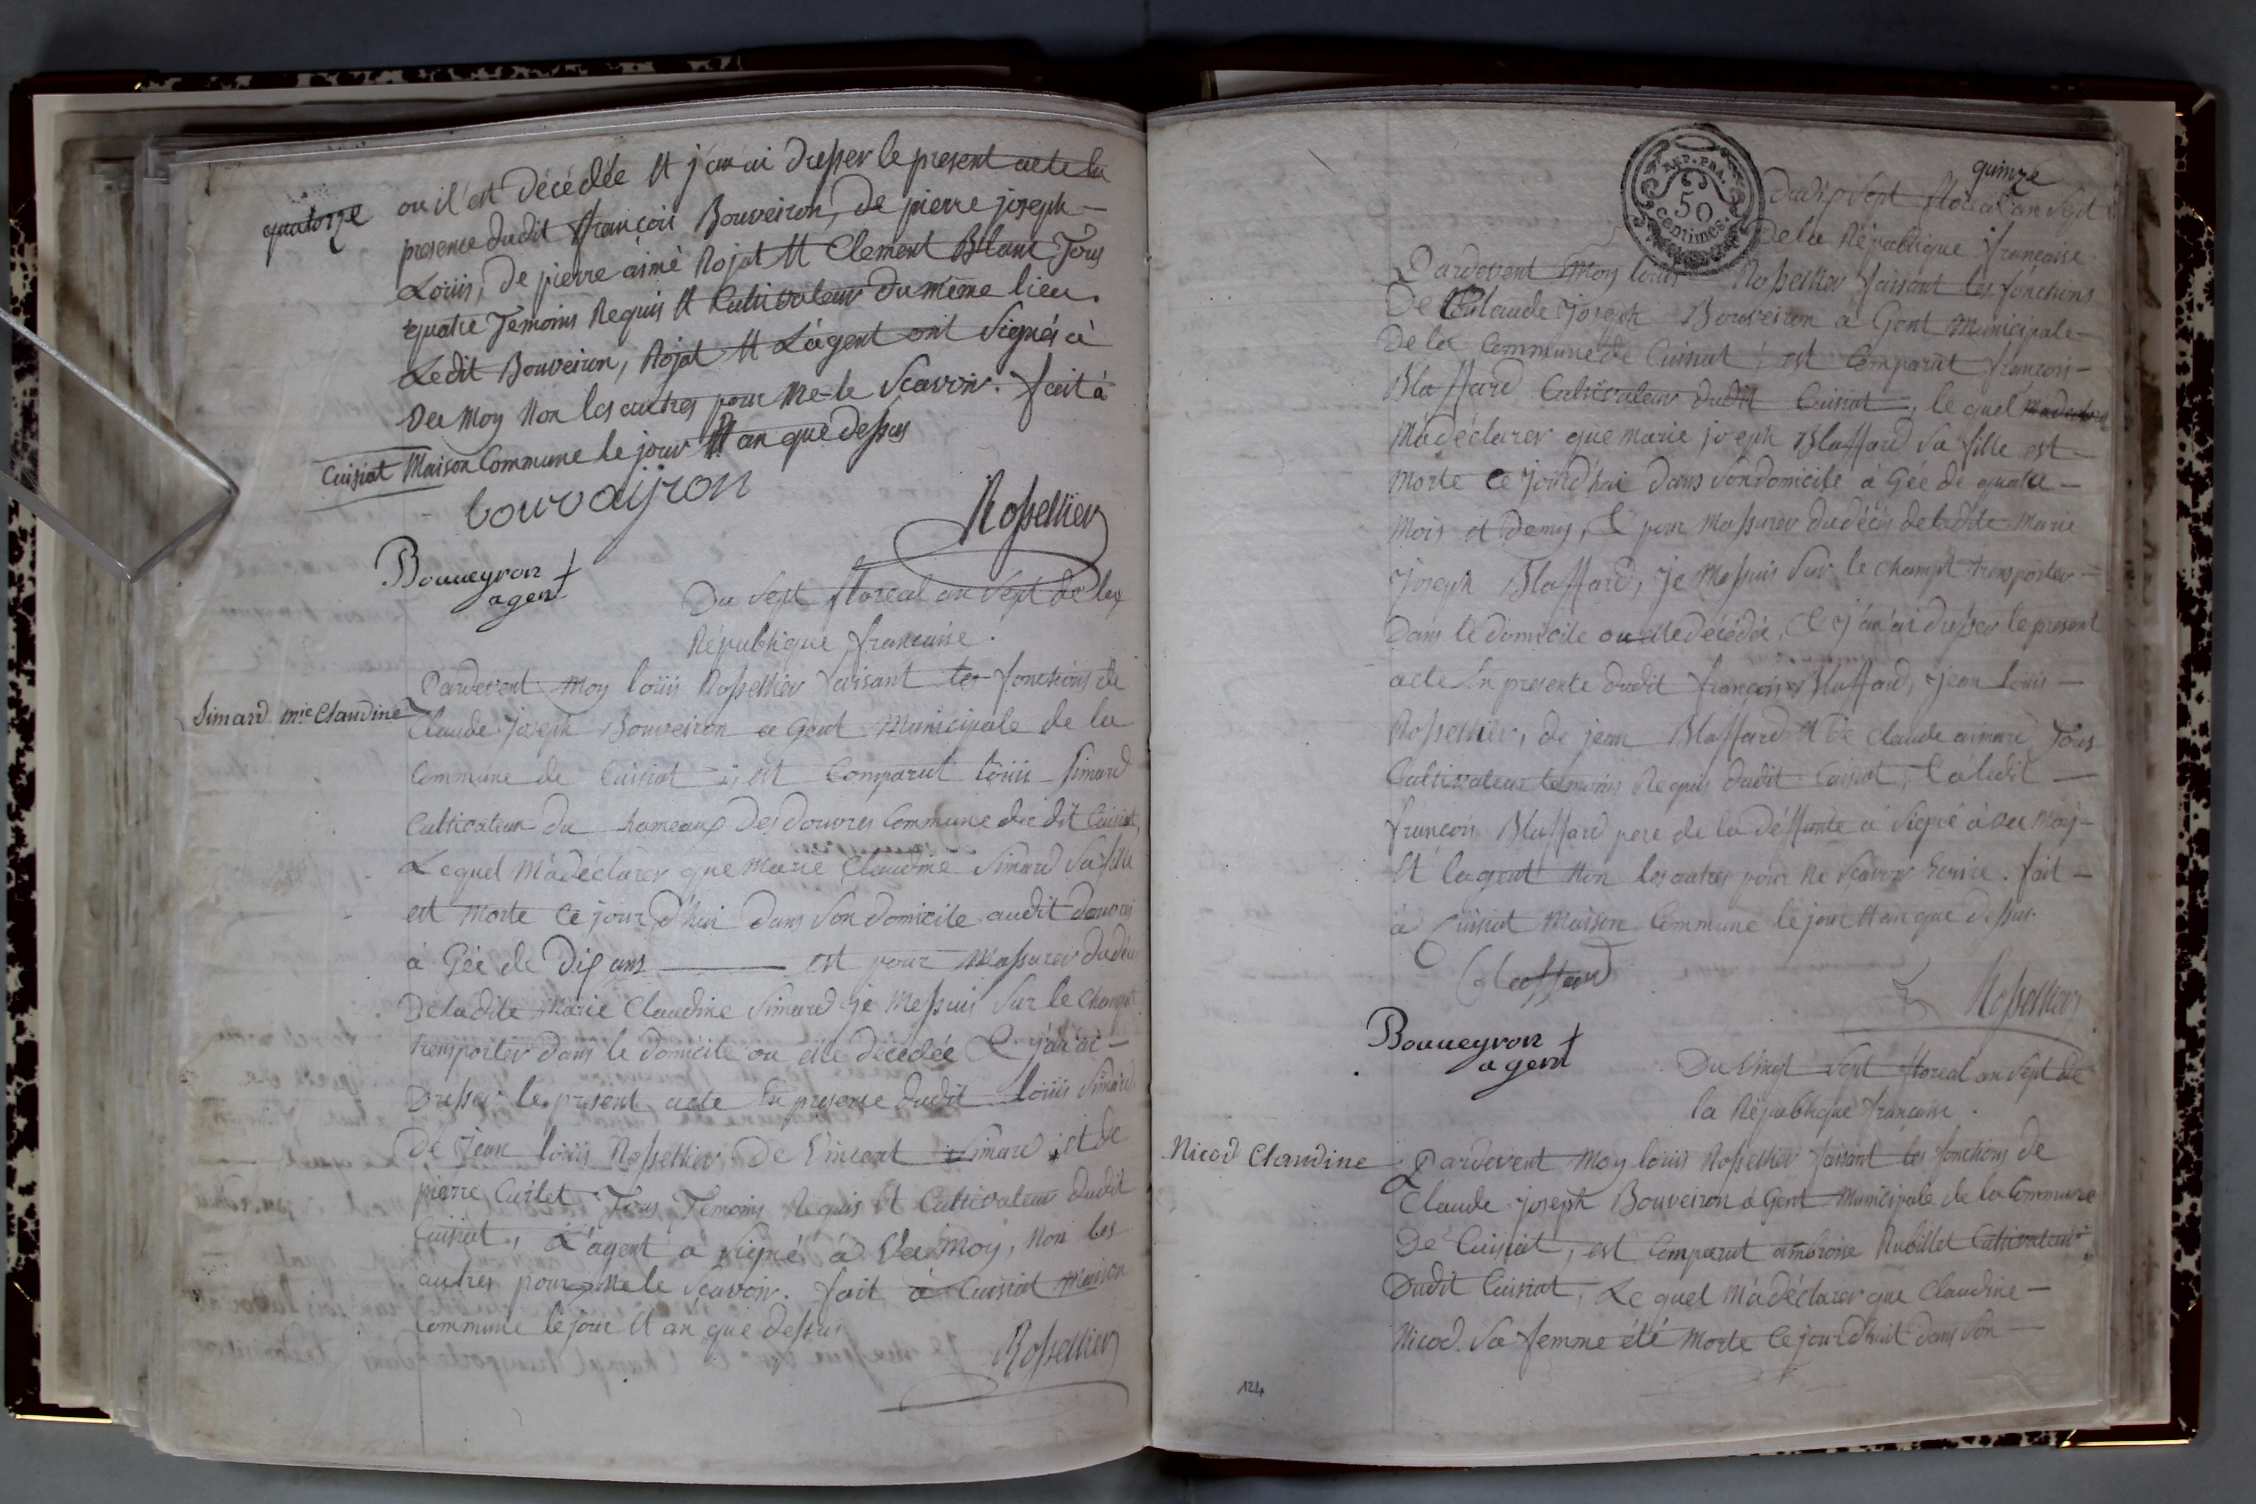 quatorze
ou il est décédée et j'an ai dresser le present acte En
presence dudit françois Bouveiron, de pierre joseph
Loüis, de pierre aimé Rojat et Clement Blanc Tous
quatre Témoins Requis et Cultivateur du même lieu.
Ledit Bouveiron, Rojat et L'agent ont Signés à
Vec Moy Non les autres pour Ne le Scavoir. fait à
Cuisiat Maison Commune le jour et an que dessus
bouvaijron
Rossellier
Bouueyron
agent
Du Sept floreal an Sept de la
République francaise.
Simard mie Claudine
Pardevent Moy loüis Rossellier faisant les fonctions de
Claude joseph Bouveiron a Gent Municipale de la
Commune de Cuisiat, est Comparut loüis Simard
Cultivateur du hameaux Des douvres Commune du dit Cuisiat,
Lequel M'adéclarer que Marie Claudine Simard Sa fille
est Morte Ce jour d'hui dans Son domicile audit douvres
à Gée de Dix ans est pour Massurer du déces
De ladite Marie Claudine Simard je Messuis Sur le Champt
transporter dans le domicile ou elle décédée Et j'an ai
Dresser le present acte En presence dudit loüis Simard
De jean loüis Rossellier De Vincent Simard et de
pierre Curlet Tous Temoins Requis Et Cultivateur dudit
Cuisiat, L'agent a Signé à Vec Moy, Non les
autres pour Ne le Scavoir. fait à Cuisiat Maison
Commune le jour et an que dessus
Rossellier
quinze
REP. FRA.
50
centimes
Sept floreal an Sept
De la République francaise
Pardevent Moy loüis Rossellier faisant les fonctions
De Claude joseph Bouveiron a Gent Municipale
De la Commune de Cuisiat, est Comparut françois
Blaffard Cultivateur dudit Cuisiat, le quel
M'adéclarer que Marie joseph Blaffard Sa fille est
Morte Ce jourd'hui dans Son domicile à Gée de quatre
Mois et Demy, Et pour Massurer du décès de ladite Marie
joseph Blaffard, je Messuis Sur le Champt transporter
Dans le domicile ou elle décédée, Et j'an ai dresser le present
acte En presence dudit françois Blaffard, jean loüis
Rossellier, de jean Blaffard et De Claude aimard Tous
Cultivateur témoins Requis dudit Cuisiat, ledit
françois Blaffard pere de la déffunte a Signé à Vec Moy
Et lagent Non les autres pour Ne Scavoir Ecrire. fait
à Cuisiat Maison Commune le jour et an que dessus.
Blaffard
Rossellier
Bouueyron
agent
Du Vingt Sept floreal an Sept de
la République francaise.
Nicod Claudine
Pardevent Moy loüis Rossellier faisant les fonctions de
Claude joseph Bouveiron a Gent Municipale de la Commune
De Cuisiat, est Comparut ambroise Rubillet Cultivateur
dudit Cuisiat, Le quel M'adéclarer que Claudine
Nicod Sa femme été Morte Ce jourd'huit dans Son
124